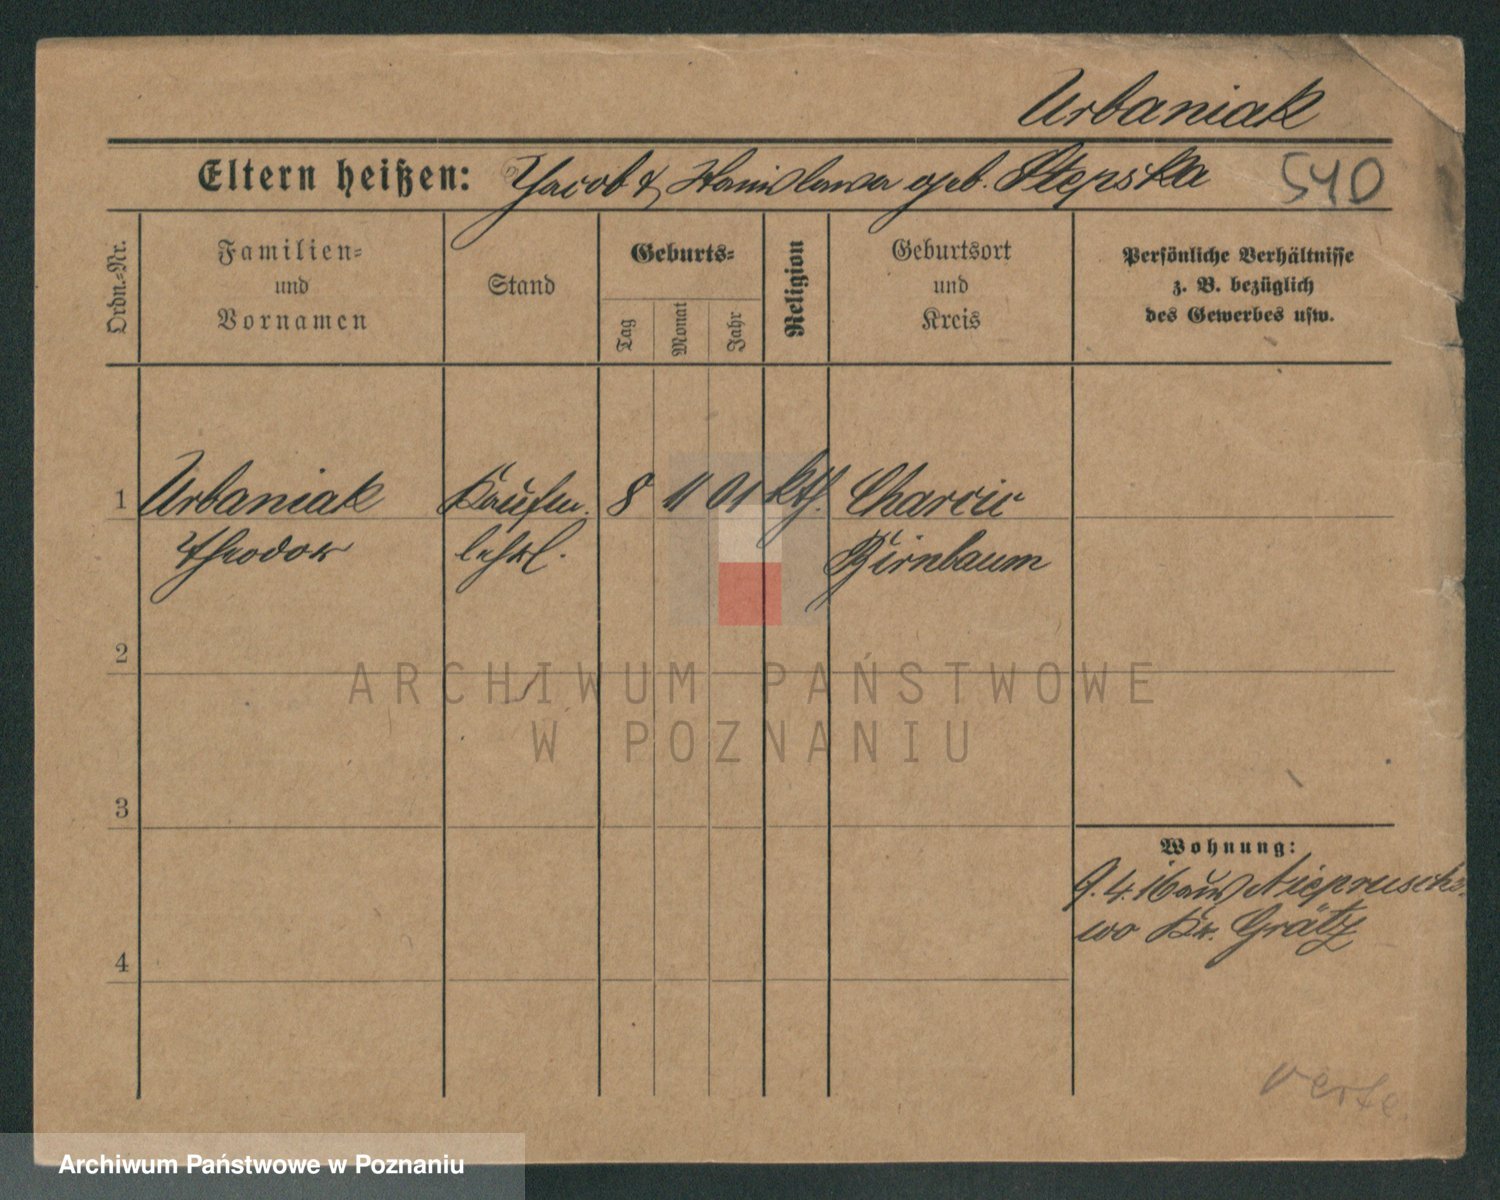 Urbaniak
Eltern heißen: Jacob & Stanislawa geb. Stepska 540
Ordn.-Nr.
Familien-
und
Vornamen
Stand
Geburts-
Tag
Monat
Jahr
Religion
Geburtsort
und
Kreis
Persönliche Verhältnisse
z. B. bezüglich
des Gewerbes usw.
1 Urbaniak Kaufm. 8 11 01 kth. Charcic
Theodor lehrl. Birnbaum
2
3
4
Wohnung:
9.4.16 aus Niepruschewo
wo Kr. Grätz
verte
ARCHIWUM PAŃSTWOWE
W POZNANIU
Archiwum Państwowe w Poznaniu